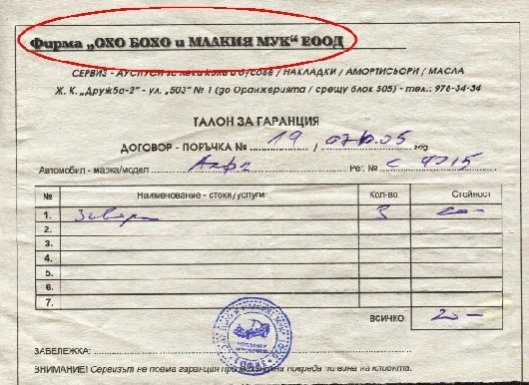 Фирма „ОХО БОХО и МАЛКИЯ МУК“ ЕООД
СЕРВИЗ - АУСПУСИ за леки коли и бусове / НАКЛАДКИ / АМОРТИСЬОРИ / МАСЛА
Ж. К. „Дружба-2" - ул. „503" № 1 (до Оранжерията / срещу блок 505) - тел.: 976-34-34
ТАЛОН ЗА ГАРАНЦИЯ
ДОГОВОР - ПОРЪЧКА № 19 / 07.10.05 год.
Автомобил - марка/модел Рег. № С 4915
№ Наименование - стоки/услуги Кол-во Стойност
1. 3
2.
3.
4.
5.
6.
7.
ВСИЧКО: 20 -
ЗАБЕЛЕЖКА:
ВНИМАНИЕ! Сервизът не поема гаранция при повреда по вина на клиента.